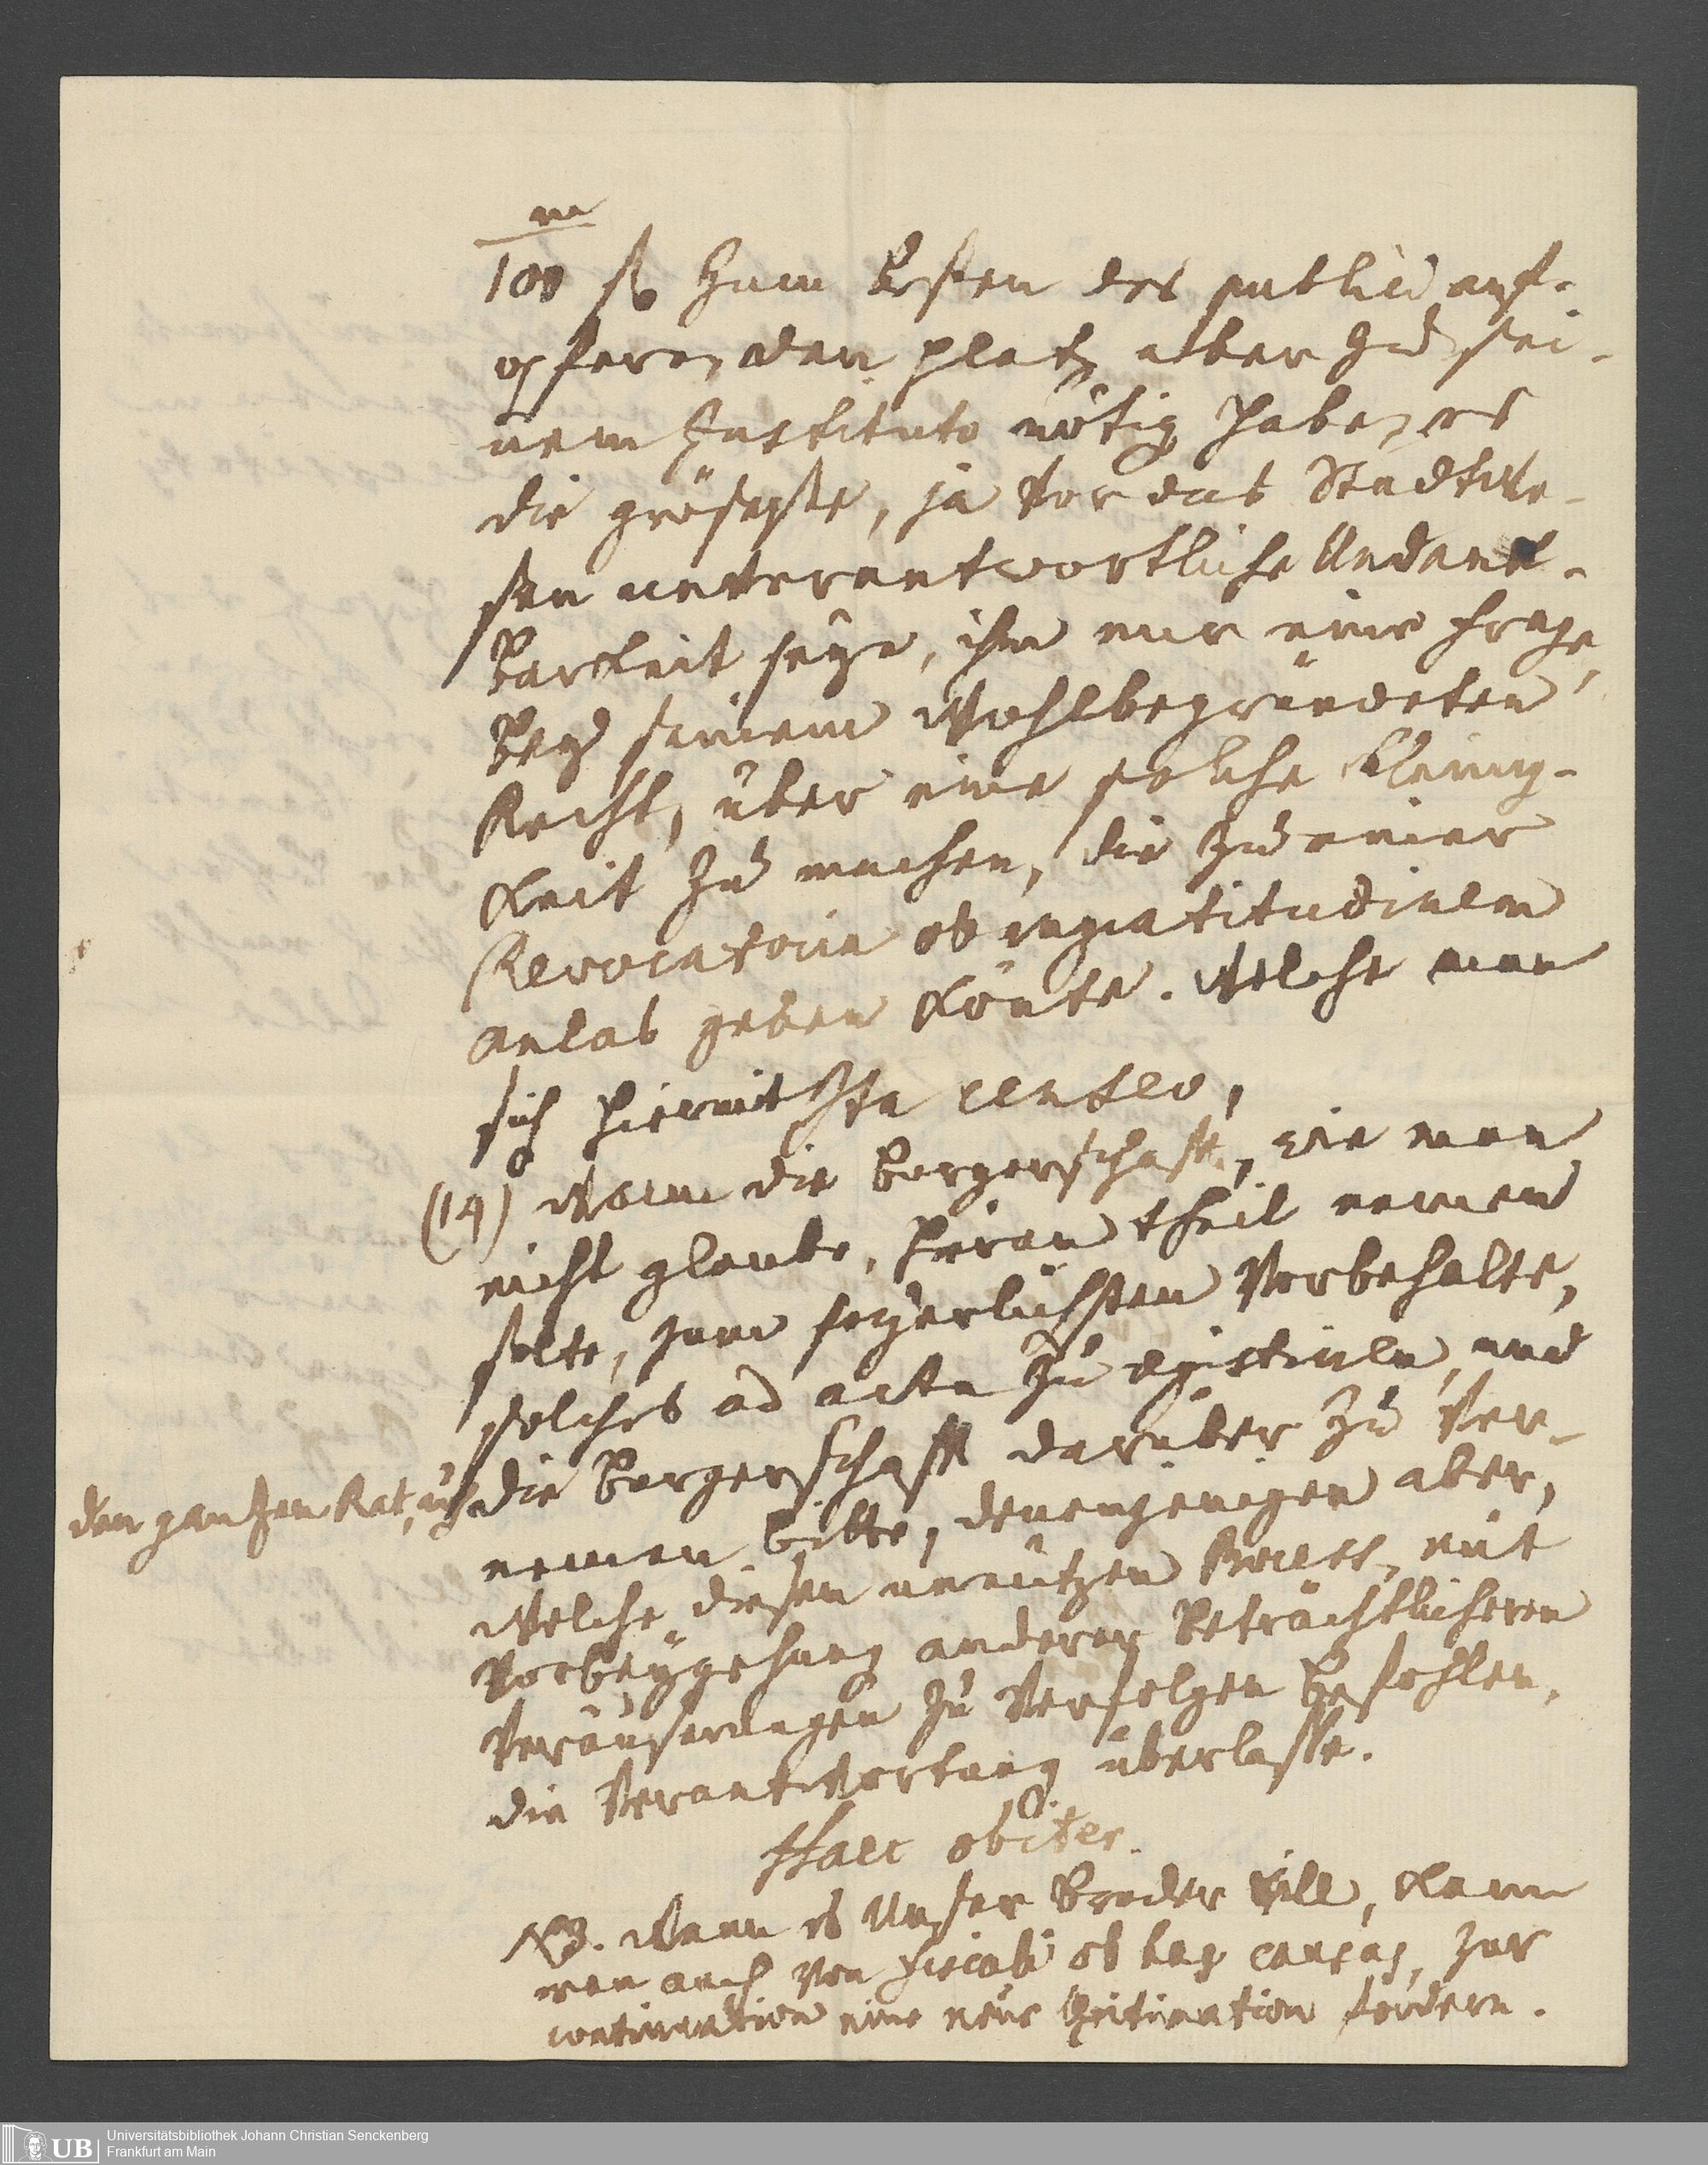 m
100 fl zum besten des publici auf-
opfere, den platz aber zu sei-
nem Instituto nötig habe, es
die gröseste, ja vor das Stadtwe-
sen unverantwortliche Undank-
barkeit seye, ihm nur eine frage,
bey seinem Wohlbegründeten
Recht, über eine solche kleinig-
keit zu machen, die zu einer
Revocatoria ob ingratitudinem
anlas geben könte. Welche man
sich hiermit
(14) Wann die burgerschaft, wie man
nicht glaube, hieran theil nemen
solte, zum feyerlichsten Vorbehalte,
solches ad acta zu registriren, und
den gantzen Rat, auch die burgerschaft darüber zu ver-
nemen bitte, denenjenigen aber,
welche diesen unnützen Process, mit
Vorbeygehung anderer beträchtlicheren
Veräuserungen zu verfolgen befohlen,
die Verantwortung überlasse.
Haec obiter.
NB. Wann es Unser bruder will, kann
man auch von Fiscali ob has causas, zur
continuation eine neue legitimation fordern.
Universitätsbibliothek Johann Christian Senckenberg
UB Frankfurt am Main